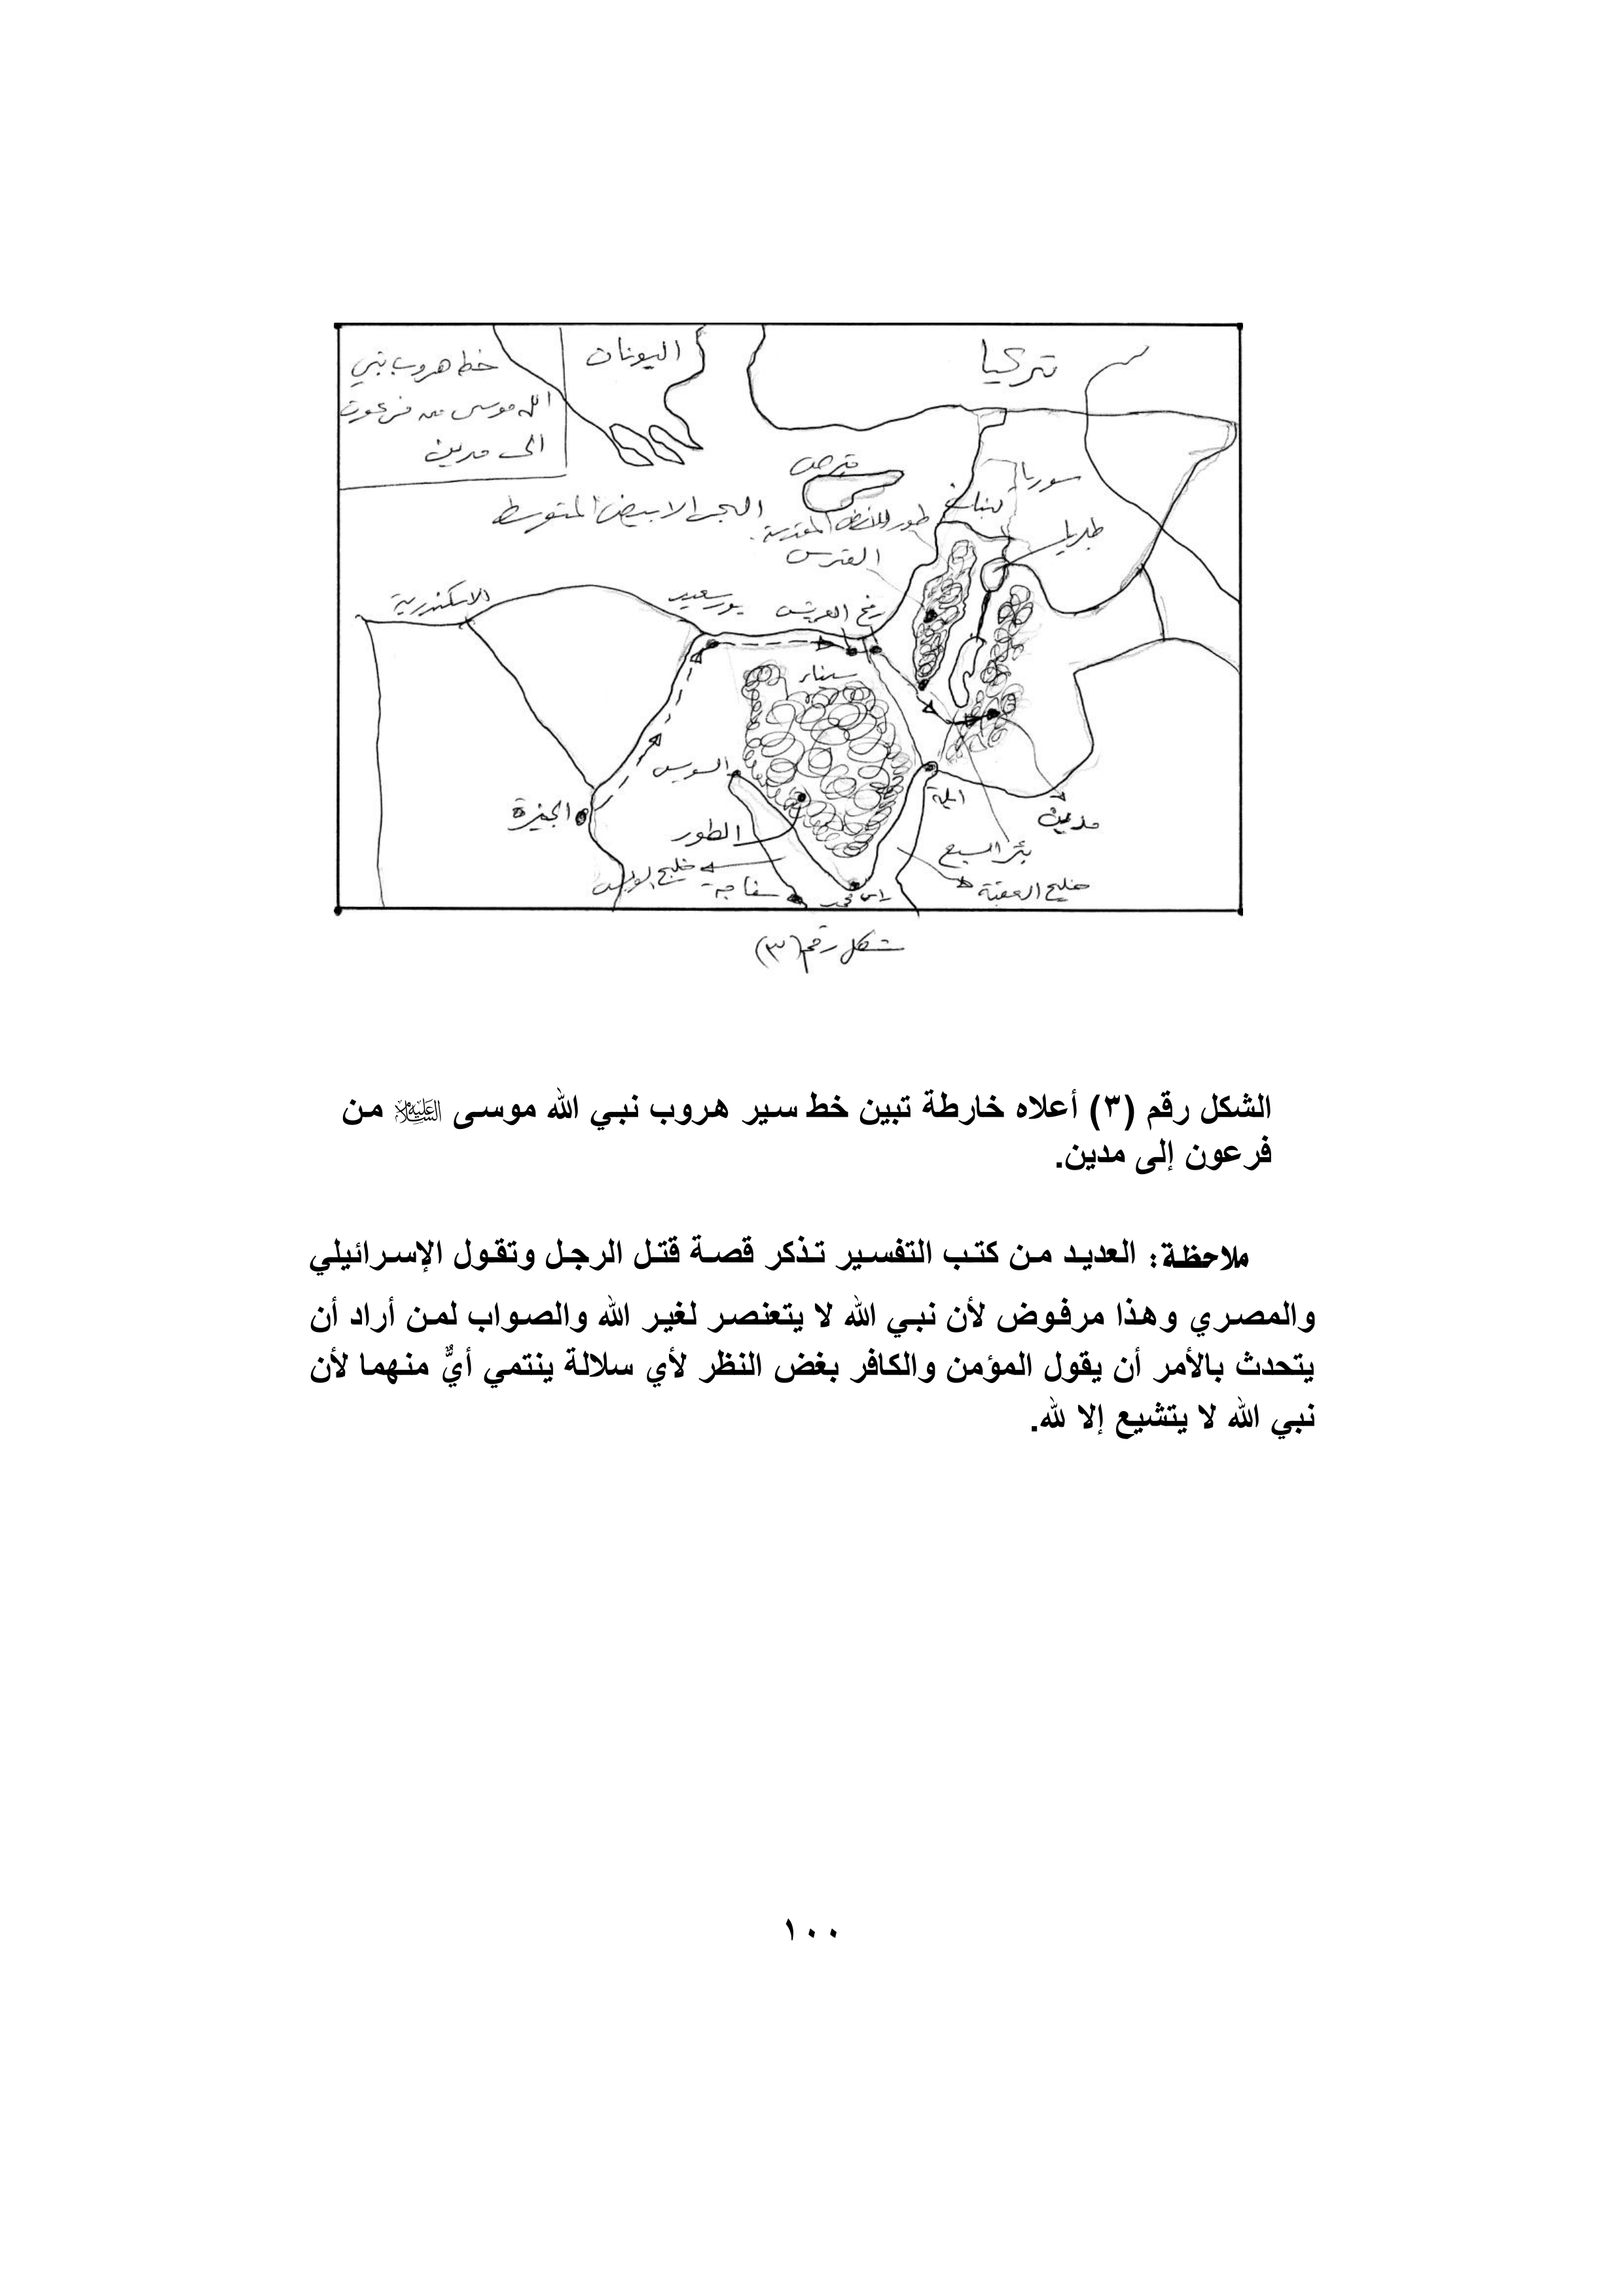 خط هروب نبي
الله موسى من فرعون
الى مدين
اليونان
تركيا
قبرص
سوريا
لبنان
البحر الابيض المتوسط
طور المقدسة
طبريا
القدس
الاسكندرية
بور سعيد
العريش
رفح
سيناء
السويس
الجيزة
ايلة
مدين
الطور
بئر السبع
خليج السويس
سفاجة
راس محمد
خليج العقبة
شكل رقم (٣)
الشكل رقم (٣) أعلاه خارطة تبين خط سير هروب نبي الله موسى عليه السلام من
فرعون إلى مدين.
ملاحظة: العديد من كتب التفسير تذكر قصة قتل الرجل وتقول الإسرائيلي
والمصري وهذا مرفوض لأن نبي الله لا يتعنصر لغير الله والصواب لمن أراد أن
يتحدث بالأمر أن يقول المؤمن والكافر بغض النظر لأي سلالة ينتمي أيٌّ منهما لأن
نبي الله لا يتشيع إلا لله.
١٠٠